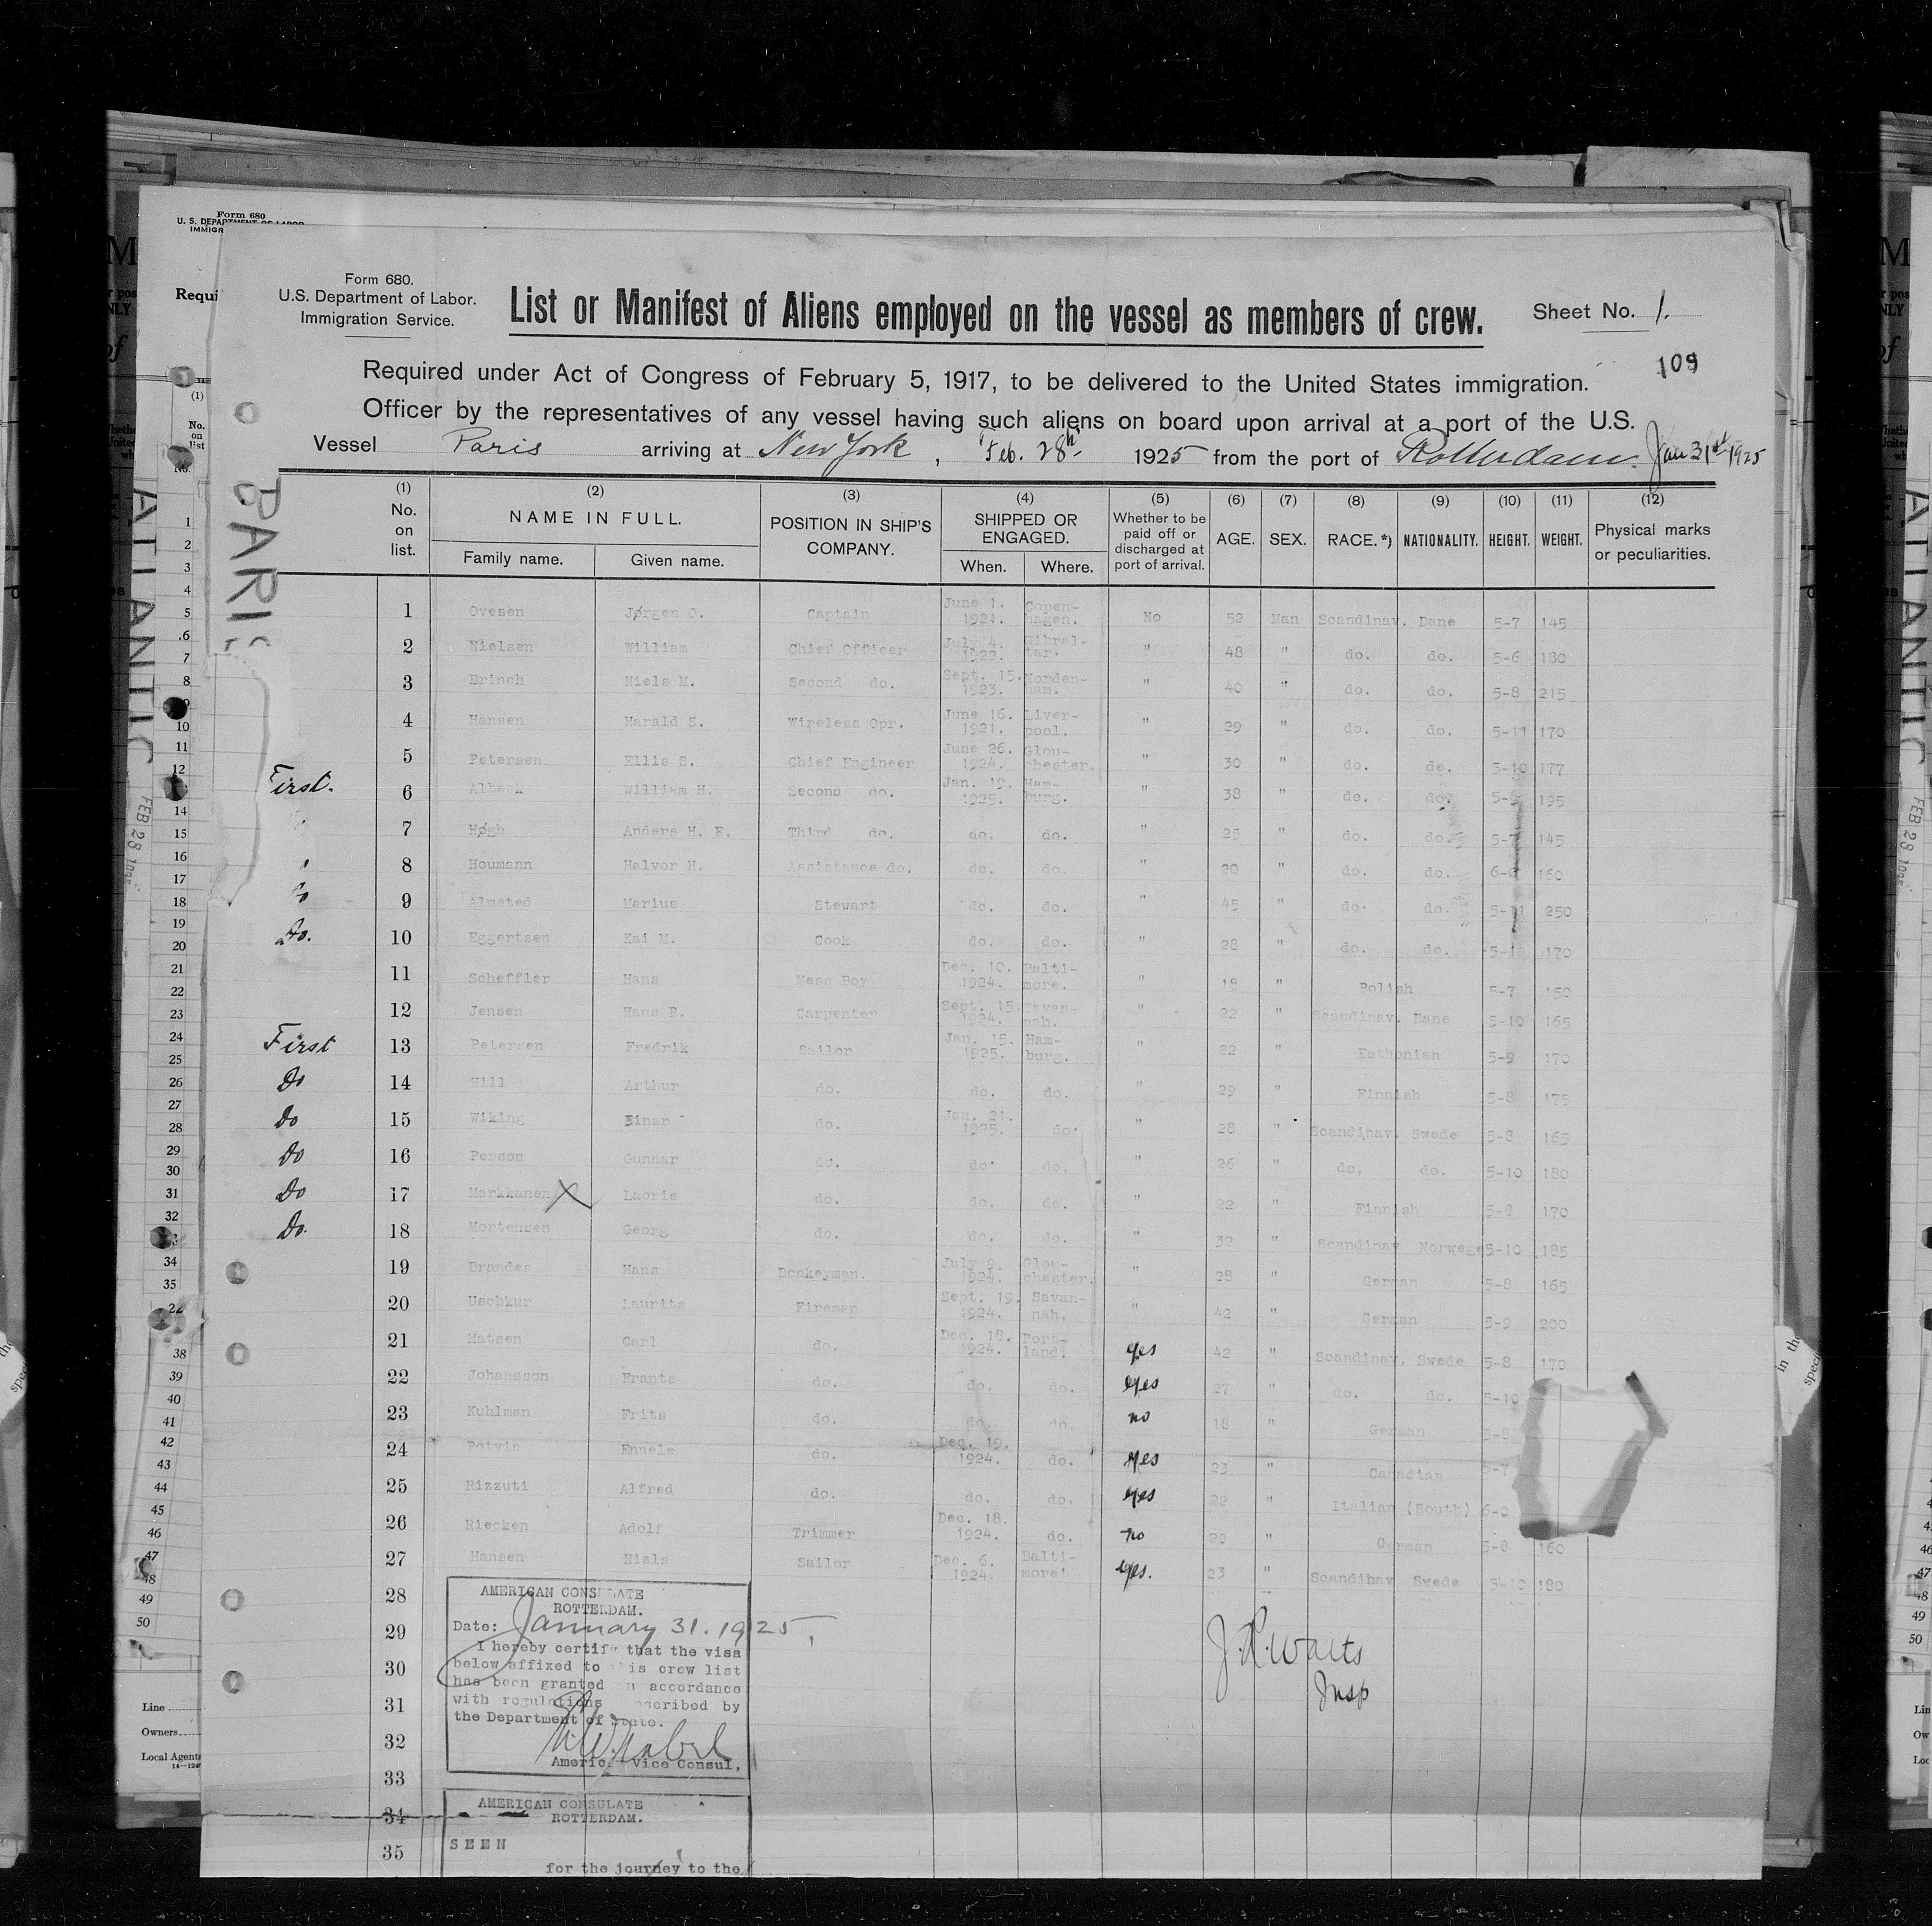 Form 680.
U.S. Department of Labor.
Immigration Service.
List or Manifest of Aliens employed on the vessel as members of crew.
Sheet No. 1.
109
Required under Act of Congress of February 5, 1917, to be delivered to the United States immigration.
Officer by the representatives of any vessel having such aliens on board upon arrival at a port of the U.S.
Vessel Paris arriving at New York, Feb. 28th 1925 from the port of Rotterdam. Jan 31st 1925
(1) No. on list.
(2) NAME IN FULL. Family name. Given name.
(3) POSITION IN SHIP'S COMPANY.
(4) SHIPPED OR ENGAGED. When. Where.
(5) Whether to be paid off or discharged at port of arrival.
(6) AGE.
(7) SEX.
(8) RACE.*)
(9) NATIONALITY.
(10) HEIGHT.
(11) WEIGHT.
(12) Physical marks or peculiarities.
1 Ovesen Jørgen O. Captain June 1. 1921. Copenhagen. No 52 Man Scandinav. Dane 5-7 145
2 Nielsen William Chief Officer July 4. 1922. Gibraltar. " 48 " do. do. 5-6 180
3 Brinch Niels M. Second do. Sept. 15. 1923. Nordenham. " 40 " do. do. 5-8 215
4 Hansen Harald S. Wireless Opr. June 16. 1921. Liverpool. " 29 " do. do. 5-11 170
5 Petersen Ellis S. Chief Engineer June 26. 1924. Glouchester. " 30 " do. do. 5-10 177
First. 6 Albeck William H. Second do. Jan. 19. 1925. Hamburg. " 38 " do. do. 195
7 Høgh Anders H. E. Third do. do. do. " 25 " do. do. 5-7 145
8 Houmann Halvor H. Assistance do. do. do. " 20 " do. do. 160
do 9 Almsted Marius Stewart do. do. " 45 " do. do. 5-11 250
do. 10 Eggertsen Kai M. Cook do. do. " 28 " do. do. 170
11 Scheffler Hans Mess Boy Dec. 10. 1924. Baltimore. " 18 " Polish 5-7 150
12 Jensen Hans P. Carpenter Sept. 15. 1924. Savannah. " 22 " Scandinav. Dane 5-10 165
First 13 Petersen Fredrik Sailor Jan. 15. 1925. Hamburg. " 22 " Esthonian 5-9 170
Do 14 Hill Arthur do. do. do. " 29 " Finnish 5-8 175
Do 15 Wiking Einar do. Jan. 21. 1925. do. " 28 " Scandinav. Swede 5-8 165
Do 16 Person Gunnar do. do. do. " 26 " do. do. 5-10 180
Do 17 Markkanen X Laorie do. do. do. " 22 " Finnish 5-8 170
Do. 18 Mortensen Georg do. do. do. " 32 " Scandinav Norwege 5-10 185
19 Brandes Hans Donkeyman. July 9. 1924. Glouchester. " 28 " German 5-8 165
20 Uschkur Laurits Fireman Sept. 19. 1924. Savannah. " 42 " German 5-9 200
21 Matsen Carl do. Dec. 18. 1924. Portland. yes 42 " Scandinav. Swede 5-8 170
22 Johansson Frants do. do. do. yes 27 " do. do. 5-10
23 Kuhlman Frits do. do. do. no 18 " German 5-8
24 Potvin Ennele do. Dec. 19. 1924. do. yes 23 " Canadian 5-7
25 Rizzuti Alfred do. do. do. yes 22 " Italian (South) 6-0
26 Riecken Adolf Trimmer Dec. 18. 1924. do. no 20 " German 5-8 160
27 Hansen Niels Sailor Dec. 6. 1924. Baltimore. yes. 23 " Scandinav Swede 5-10 180
28
29
30
31
32
33
34
35
AMERICAN CONSULATE
ROTTERDAM.
Date: January 31. 1925,
I hereby certify that the visa
below affixed to this crew list
has been granted in accordance
with regulations prescribed by
the Department of State.
American Vice Consul.
AMERICAN CONSULATE
ROTTERDAM.
SEEN
for the journey to the
J. R. Watts
Insp
PARIS
ATLANTIC
FEB 28 1925
Form 680
Line
Owners
Local Agents